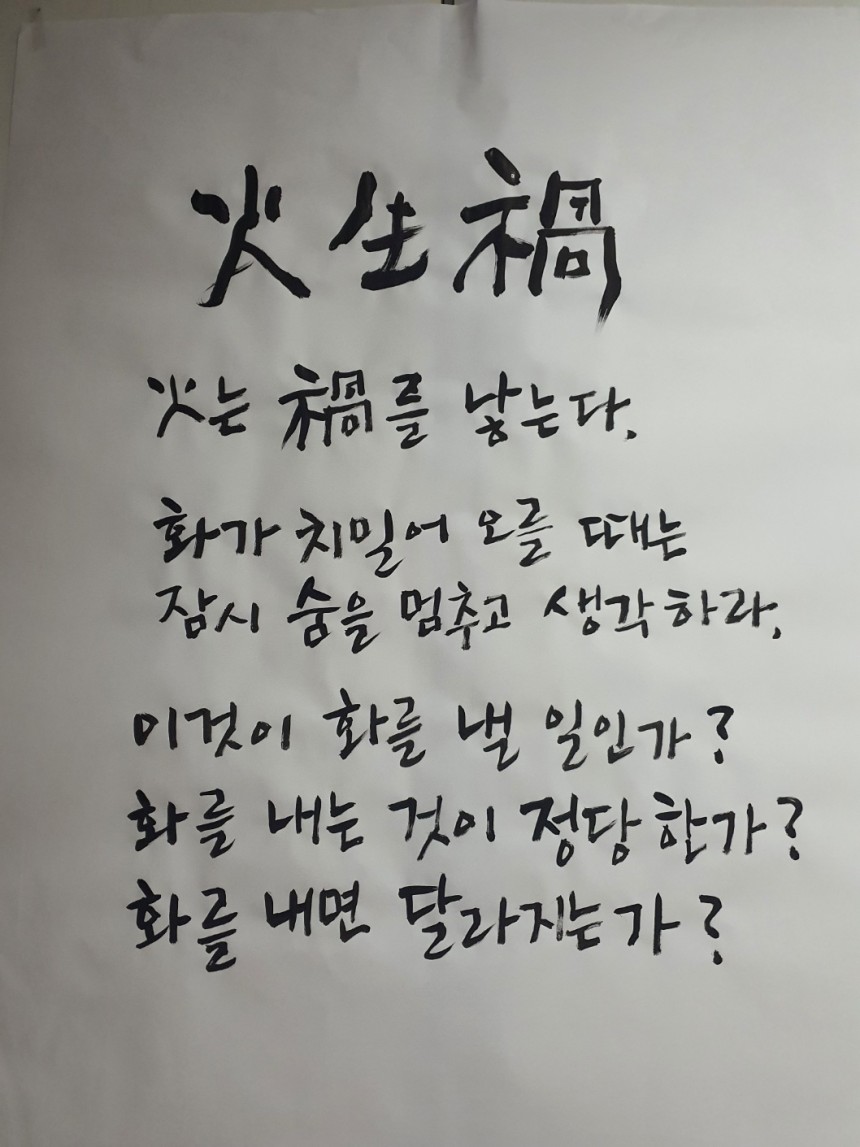 火生禍
火는 禍를 낳는다.
화가 치밀어 오를 때는
잠시 숨을 멈추고 생각하라.
이것이 화를 낼 일인가?
화를 내는 것이 정당한가?
화를 내면 달라지는가?